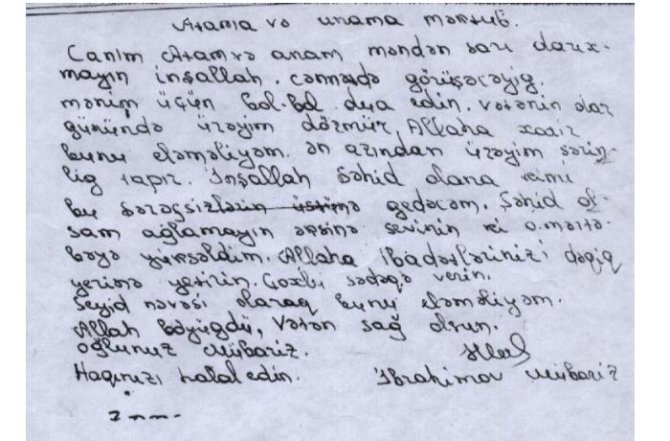 Atama və anama məktub.
Canım Atam və anam məndən sarı darıx-
mayın inşallah. cənnətdə görüşəcəyig.
mənim üçün bol-bol dua edin. vətənin dar
günündə ürəyim dözmür, Allaha xatir
bunu eləməliyəm. ən azından ürəyim sərin-
lig tapır. Inşallah Şəhid olana kimi
bu şərəfsizlərin üstünə gedəcəm. Şəhid ol-
sam ağlamayın əksinə sevinin ki o mərtə-
bəyə yüksəldim. Allaha ibadətlərinizi dəqiq
yerinə yetirin. Çoxlu sədəqə verin.
Seyid nəvəsi olaraq bunu eləməliyəm.
Allah böyügdü, Vətən sağ olsun.
oğlunuz Mübariz.
Haqınızı halal edin. İbrahimov Mübariz